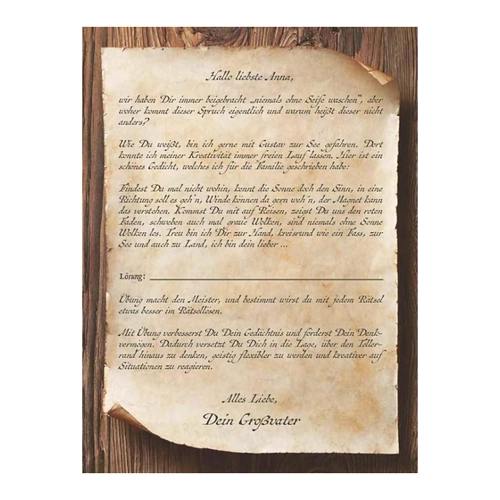 Hallo liebste Anna,
wir haben Dir immer beigebracht „niemals ohne Seife waschen", aber
woher kommt dieser Spruch eigentlich und warum heißt dieser nicht
anders?
Wie Du weißt, bin ich gerne mit Gustav zur See gefahren. Dort
konnte ich meiner Kreativität immer freien Lauf lassen. Hier ist ein
schönes Gedicht, welches ich für die Familie geschrieben habe:
Findest Du mal nicht wohin, kennt die Sonne doch den Sinn, in eine
Richtung soll es geh'n, Winde können da gern weh'n, der Magnet kann
das verstehen. Kommst Du mit auf Reisen, zeigt Du uns den roten
Faden, schweben auch mal graue Wolken, sind niemals ohne Sonne
Wolken los. Treu bin ich Dir zur Hand, kreisrund wie ein Fass, zur
See und auch zu Land, ich bin dein lieber ...
Lösung:
Übung macht den Meister, und bestimmt wirst du mit jedem Rätsel
etwas besser im Rätsellösen.
Mit Übung verbesserst Du Dein Gedächtnis und förderst Dein Denk-
vermögen. Dadurch versetzt Du Dich in die Lage, über den Teller-
rand hinaus zu denken, geistig flexibler zu werden und kreativer auf
Situationen zu reagieren.
Alles Liebe,
Dein Großvater